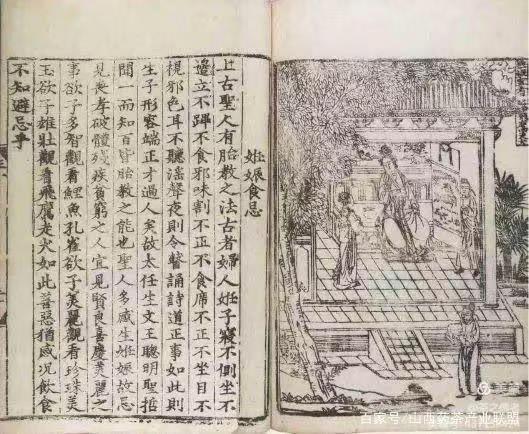 妊娠食忌
上古聖人有胎教之法古者婦人妊子寢不側坐不
邊立不蹕不食邪味割不正不食席不正不坐目不
視邪色耳不聽淫聲夜則令瞽誦詩道正事如此則
生子形容端正才過人矣故太任生文王聰明聖哲
聞一而知百皆胎教之能也聖人多感生妊娠故忌
見喪孝破體殘疾貧窮之人宜見賢良喜慶美麗之
事欲子多智觀看鯉魚孔雀欲子美麗觀看珍珠美
玉欲子雄壯觀看飛鷹走犬如此善惡猶感况飲食
不知避忌乎
百家号/山西药茶产业联盟